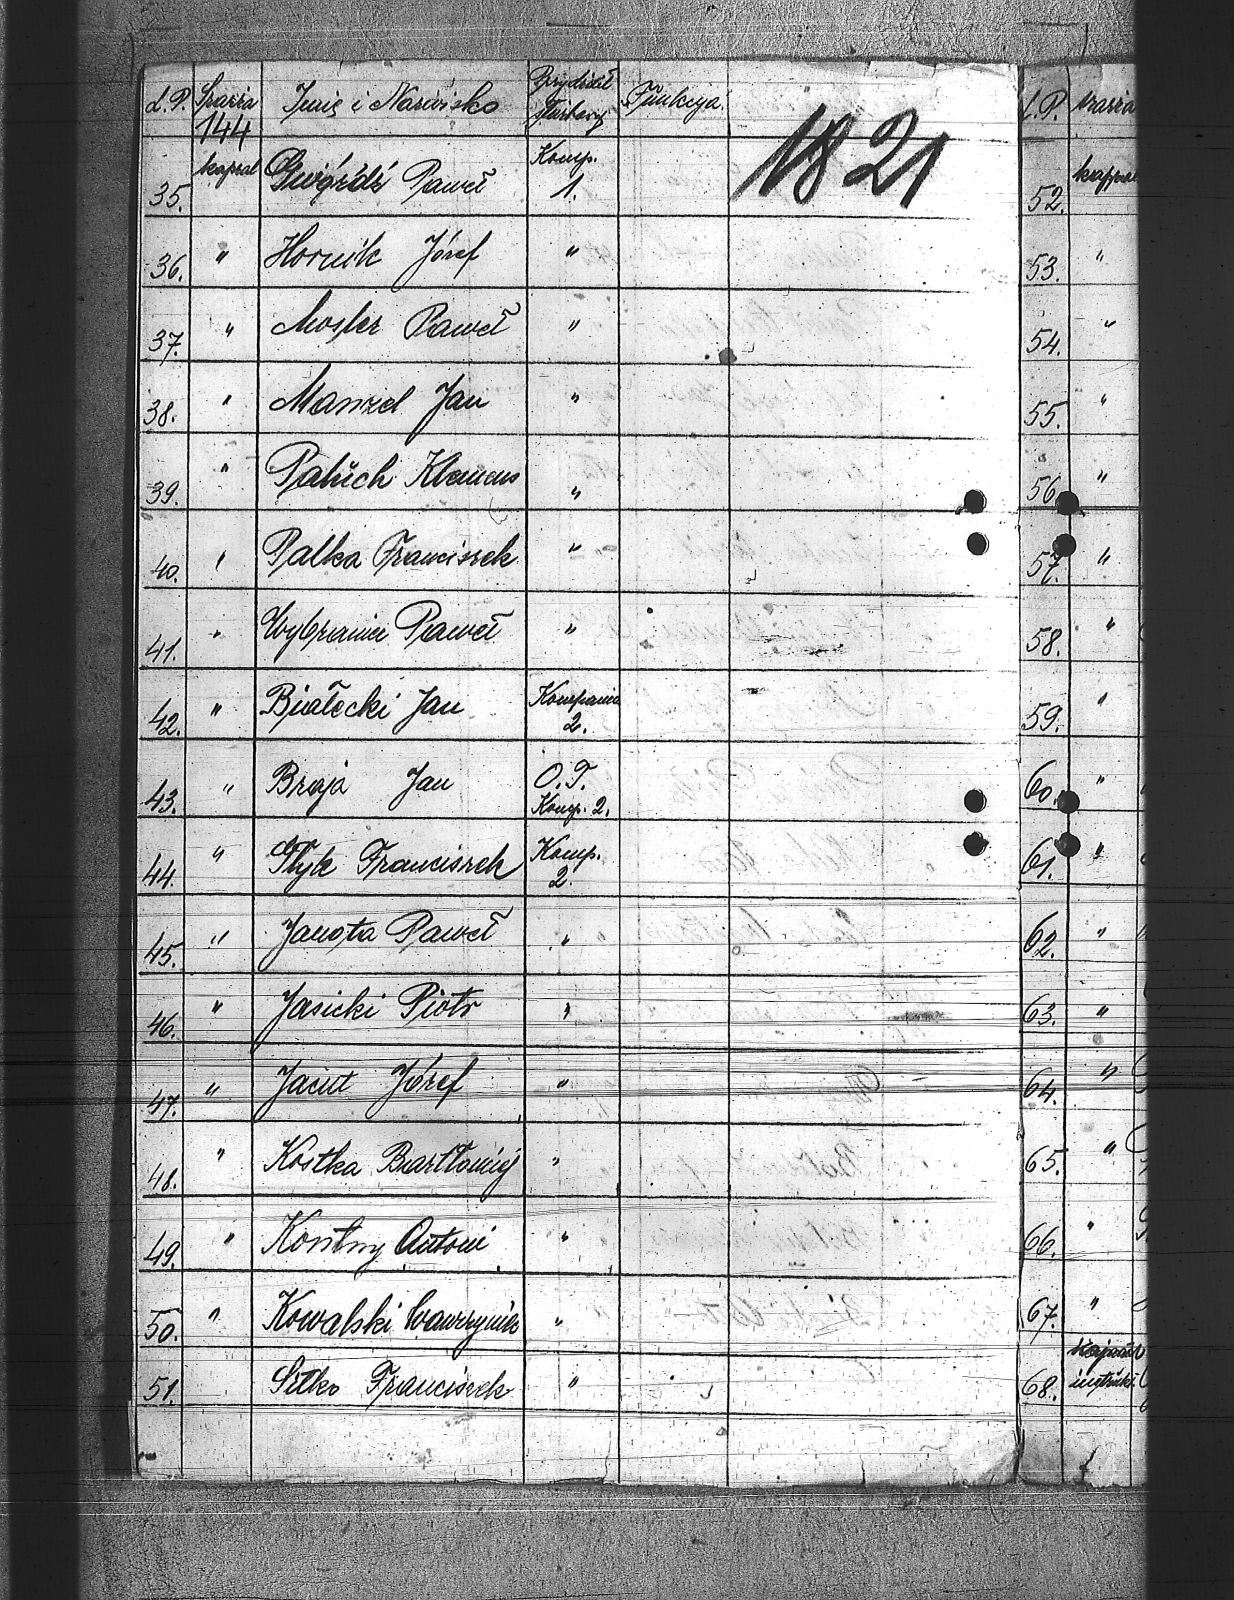 L.P. Szarża Imię i Nazwisko Przydział Funkcya.
144
35. kapral Gwióźdź Paweł Komp. 1.
1821
36. " Hornik Józef "
37. " Mosler Paweł "
38. " Manzel Jan "
39. " Paluch Klemens "
40. " Palka Franciszek "
41. " Wybraniec Paweł "
42. " Białecki Jan Kompania 2.
43. " Breja Jan O.T. Komp. 2.
44. " Franciszek Komp. 2.
45. " Janota Paweł "
46. " Jasicki Piotr "
47. " Jacut Józef "
48. " Kostka Bartłomiej "
49. " Kontny Antoni "
50. " Kowalski Wawrzyniec "
51. Sitko Franciszek "
L.P. szarża
52. kapral
53. "
54. "
55. "
56. "
57. "
58. "
59. "
60. "
61. "
62. "
63. "
64. "
65. "
66. "
67. "
68. kapral